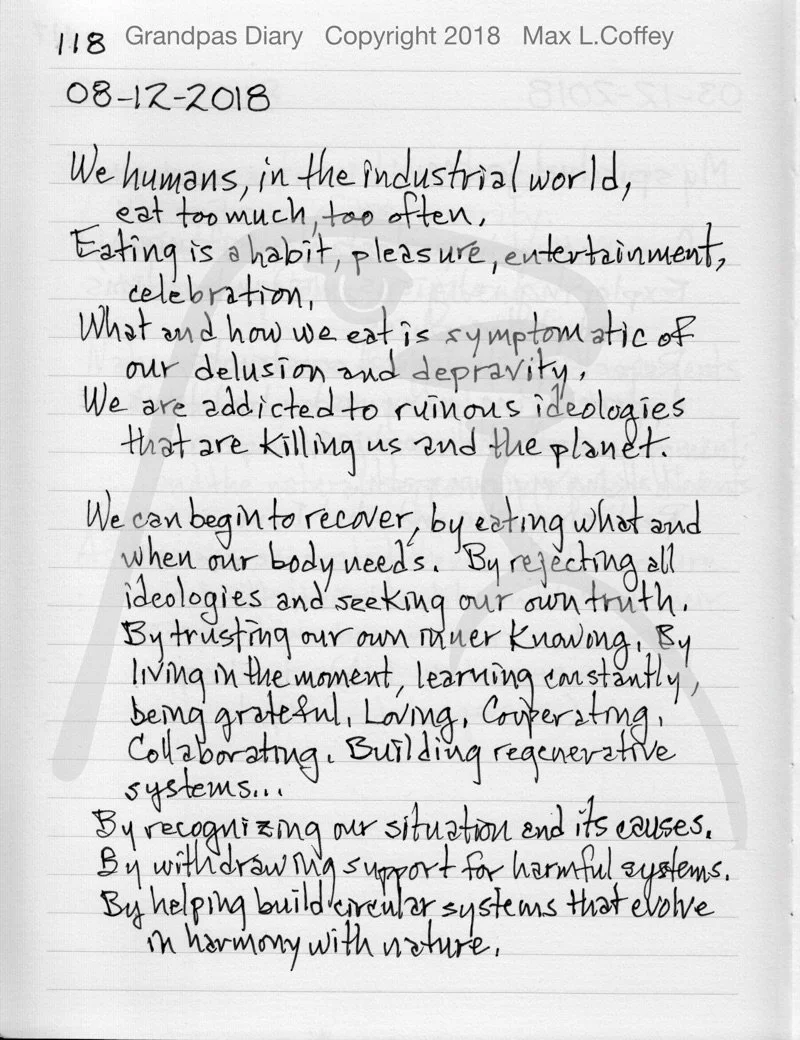 118 Grandpas Diary Copyright 2018 Max L.Coffey
08-12-2018
We humans, in the industrial world,
eat too much, too often.
Eating is a habit, pleasure, entertainment,
celebration.
What and how we eat is symptomatic of
our delusion and depravity.
We are addicted to ruinous ideologies
that are killing us and the planet.
We can begin to recover, by eating what and
when our body needs. By rejecting all
ideologies and seeking our own truth.
By trusting our own inner knowing. By
living in the moment, learning constantly,
being grateful. Loving. Cooperating.
Collaborating. Building regenerative
systems...
By recognizing our situation and its causes.
By withdrawing support for harmful systems.
By helping build circular systems that evolve
in harmony with nature.